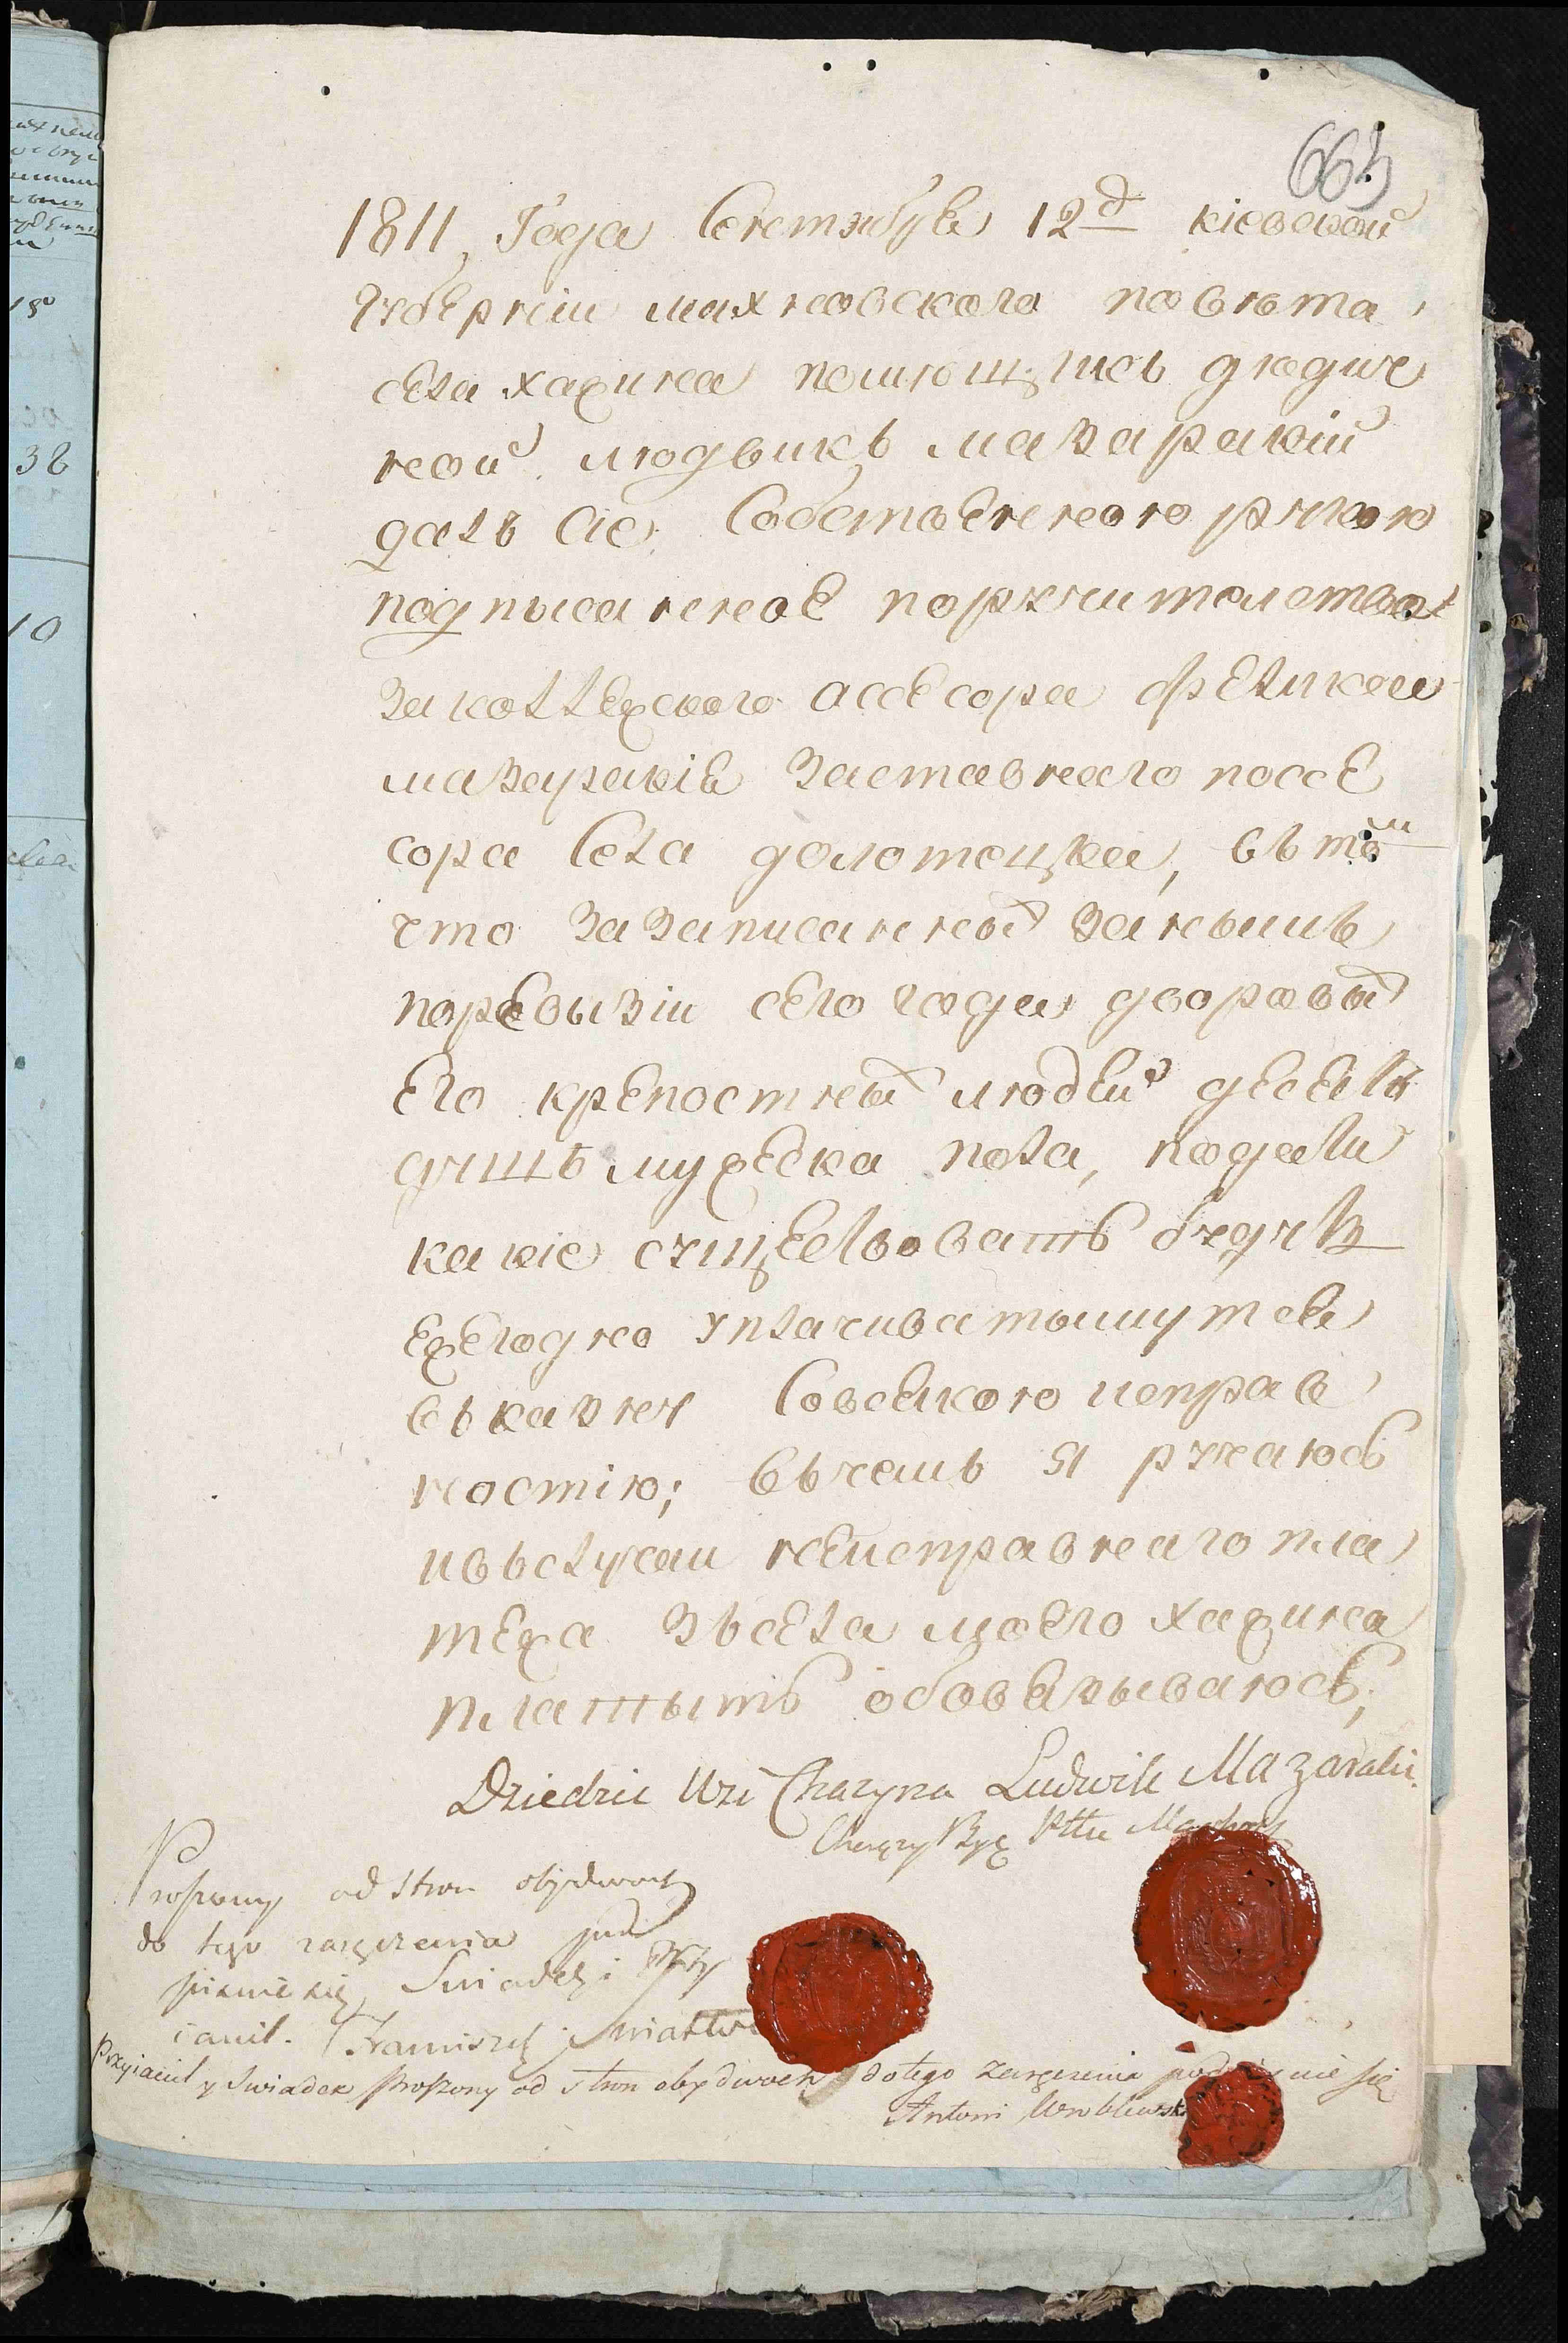 663
1811, Года Сентября 12д кіевской
Губерніи махновского повѣта,
села хажина помѣщикъ дѣдич
ной людвикъ мазаракій
далъ Сіе Собственною рукою
подписанное поручителство
за коллежского ассесора феликса
мазаракія заставного поссе
сора Села долотецка, въ томъ
что за записанных за нымъ
поревызіи сего года дворовых
Его крепостных людей десеть
душъ мужеска пола, подати
какіе существовать будутъ
Ежегодно уплачиватымутся
въ казну Совсякою исправ
ностію; въчемъ я ручаюсь
ивъслучаи неисправного пла
тежа зъсела моего хажина
платыть обовязываюсь;
Dziedzic Wsi Chażyna Ludwik Mazaraki
Chorąży Pttu
Proszony od stron obydwoch
do tego zaręczenia pod
pisuie się Swiadek i Przy
iaciel. Franciszek
Przyiaciel y Swiadek proszony od stron obydwoch do tego zaręczenia podpisuie się
Antoni Wroblewski